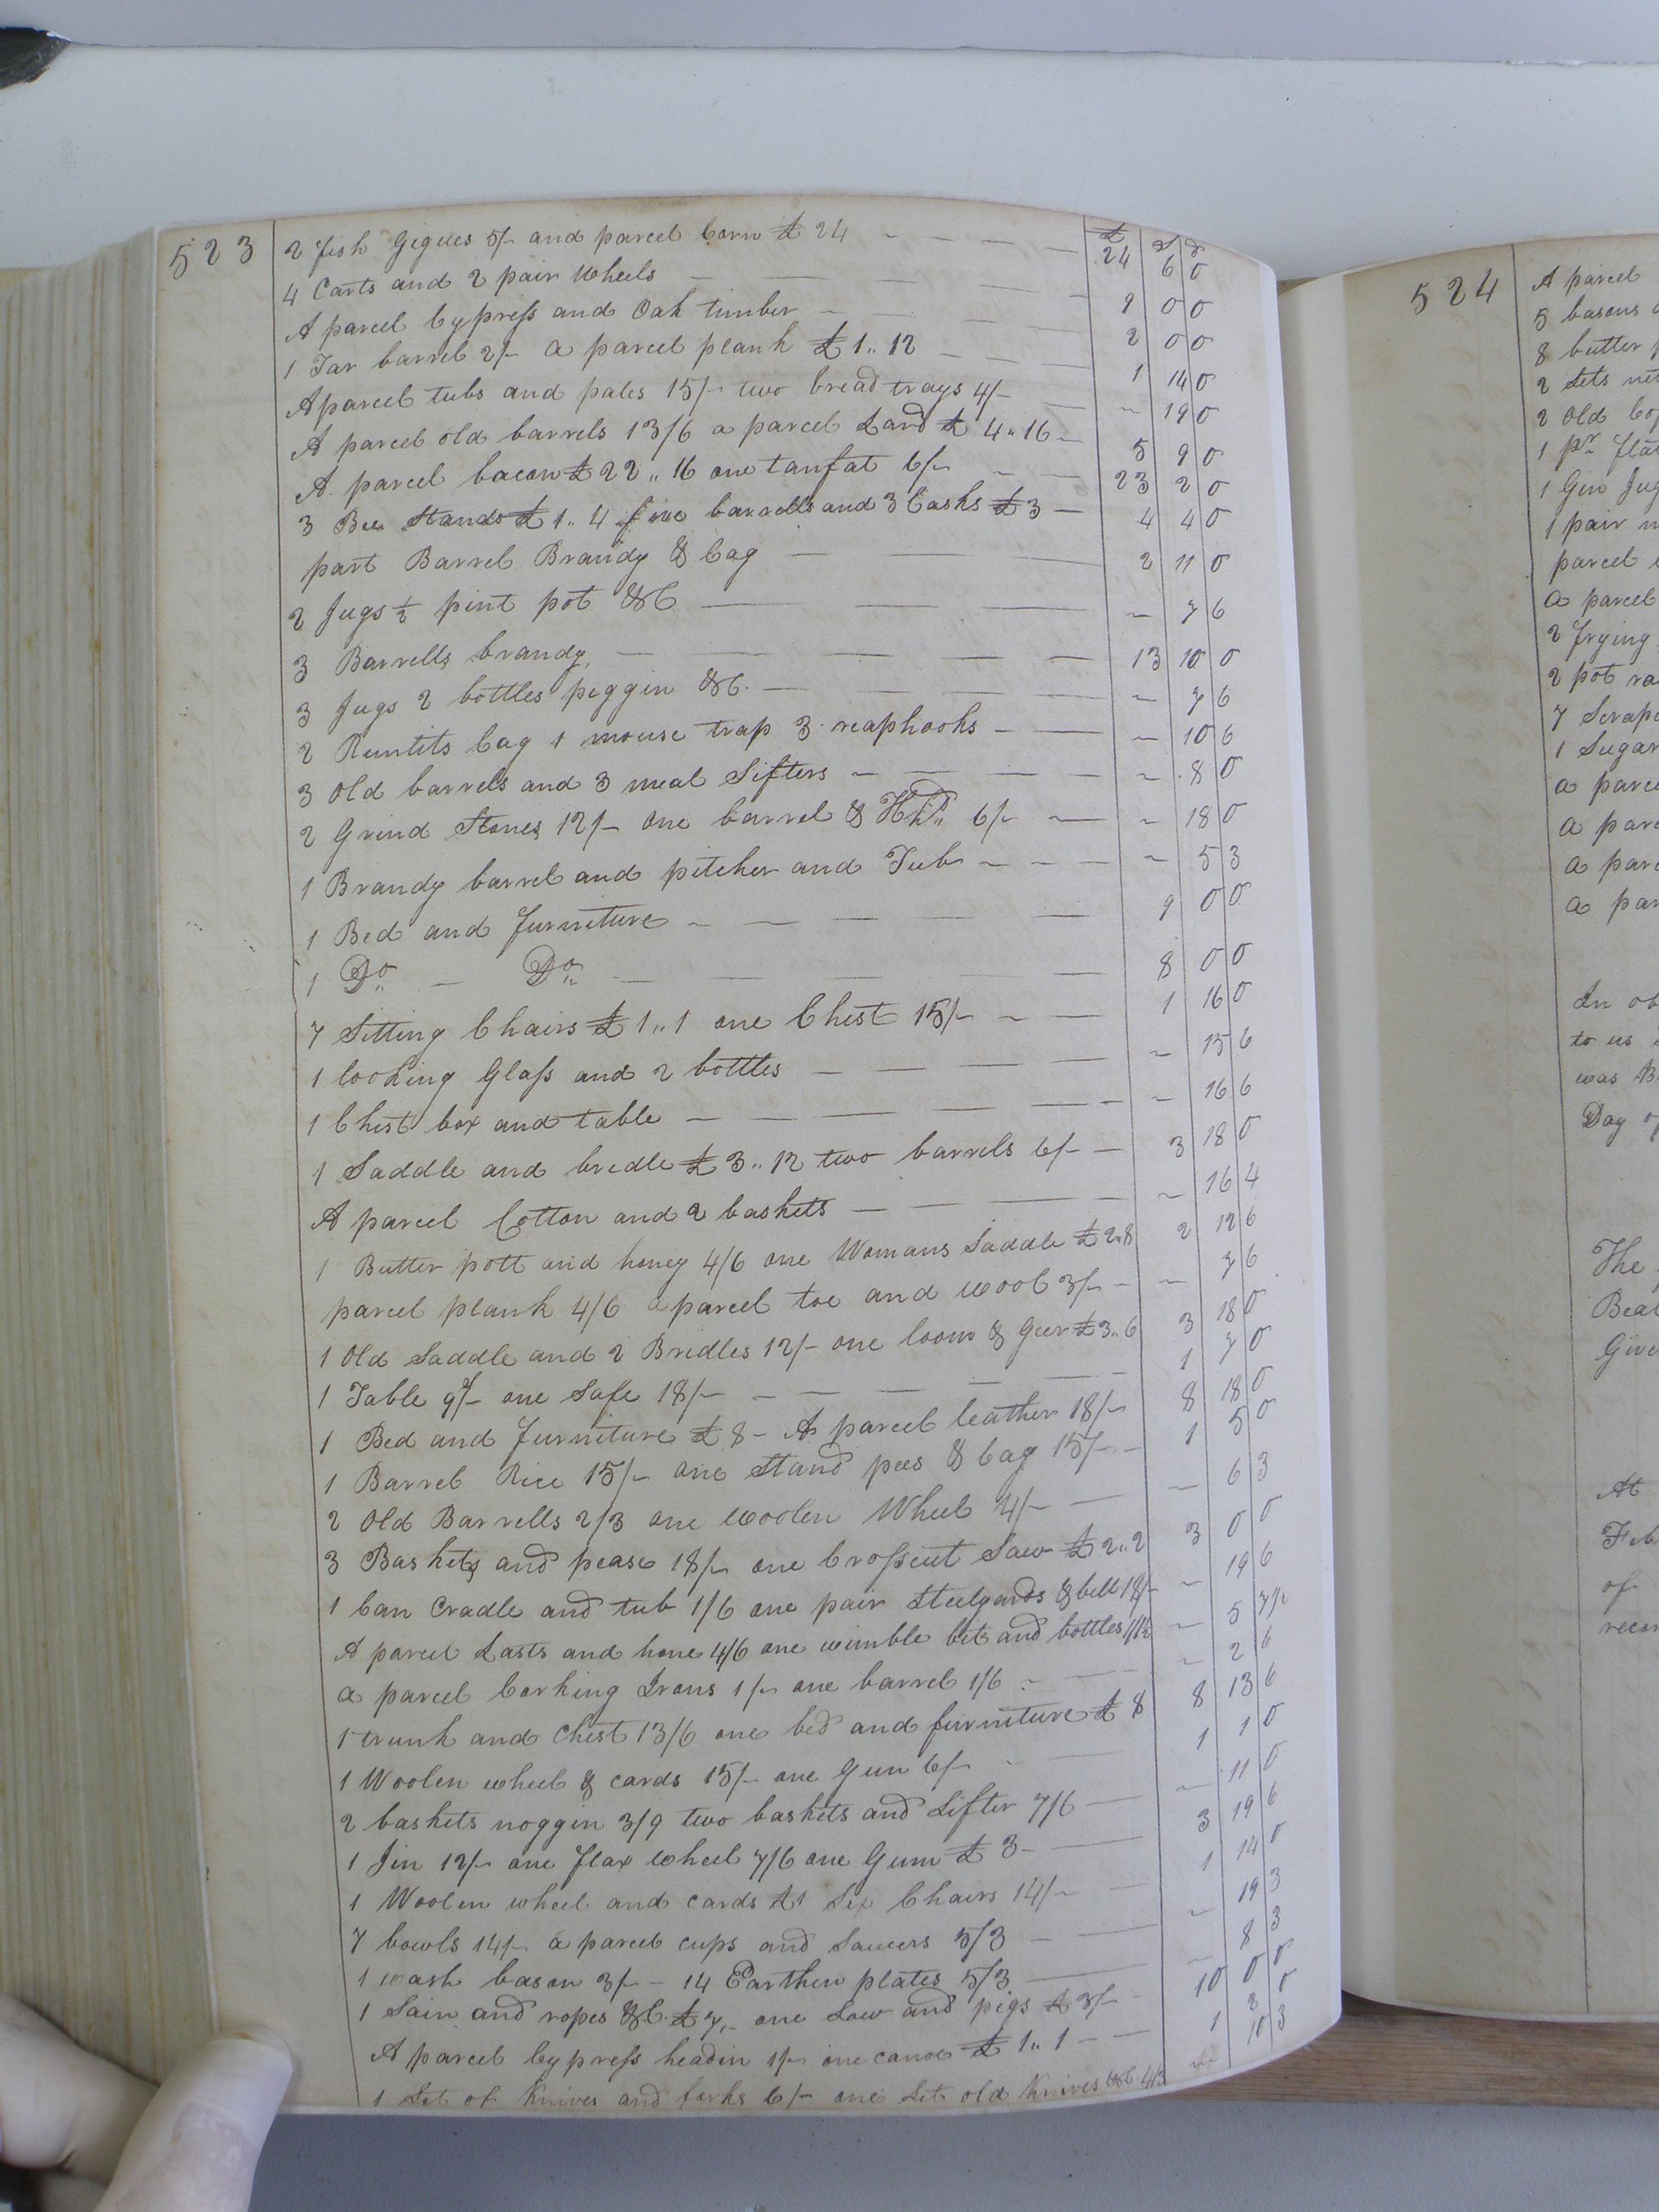 523
£ S d
2 fish Gigues 5/- and parcel Corn £ 24 24 6 0
4 Carts and 2 pair Wheels 9 0 0
A parcel Cypress and Oak timber 2 0 0
1 Tar barrel 2/- a parcel plank £ 1.. 12 1 14 0
A parcel tubs and pales 15/- two bread trays 4/- ~ 19 0
A parcel old barrels 13/6 a parcel Lard £ 4..16 5 9 0
A parcel bacon £ 22.. 16 one tanfat 6/- 23 2 0
3 Bee Stands £ 1.. 4 five barrells and 3 Casks £ 3 4 4 0
part Barrel Brandy & Cag 2 11 0
2 Jugs ½ pint pot &C ~ 7 6
3 Barrells brandy 13 10 0
3 Jugs 2 bottles piggin &C. ~ 7 6
2 Cag 1 mouse trap 3 reaphooks ~ 10 6
3 Old barrels and 3 meal Sifters ~ 8 0
2 Grind Stones 12/- one barrel & Hhd.. 6/- ~ 18 0
1 Brandy barrel and pitcher and Tub ~ 5 3
1 Bed and furniture 9 0 0
1 Do.. Do.. 8 0 0
7 Sitting Chairs £ 1..1 one Chest 15/- 1 16 0
1 looking Glass and 2 bottles ~ 15 6
1 Chest box and table ~ 16 6
1 Saddle and bredle £ 3.. 12 two barrels 6/- 3 18 0
A parcel Cotton and 2 baskets ~ 16 4
1 Butter pott and honey 4/6 one Womans Saddle £ 2..8 2 12 6
parcel plank 4/6 a parcel toe and wool 3/- ~ 7 6
1 Old Saddle and 2 Bredles 12/- one loom & Geer £ 3.. 6 3 18 0
1 Table 9/- one Safe 18/- 1 7 0
1 Bed and furniture £ 8 - A parcel leather 18/- 8 18 0
1 Barrel Rice 15/- one Stand pees & Cag 15/- 1 5 0
2 Old Barrells 2/3 one woolen Wheel 4/- ~ 6 3
3 Baskets and pease 18/- one Crosscut Saw £ 2..2 3 0 0
1 Can Cradle and tub 1/6 one pair Steelyards & bell 18/- ~ 19 6
A parcel Lasts and hone 4/6 one wimble bit and bottles 1/1½ ~ 5 7½
a parcel Corking Irons 1/- one barrel 1/6 ~ 2 6
1 trunk and Chest 13/6 one bed and furniture £ 8 8 13 6
1 Woolen wheel & cards 15/- one Gun 6/- 1 1 0
2 baskets noggin 3/9 two baskets and Sifter 7/6 ~ 11 0
1 Jin 12/- one flax wheel 7/6 one Gum £ 3 3 19 6
1 Woolen wheel and cards £1 Six Chairs 14/- 1 14 0
7 bowls 14/- a parcel cups and Saucers 5/3 ~ 19 3
1 wash bason 3/- - 14 Earthen plates 5/3 ~ 8 3
1 Sain and ropes &C. £ 7.- one Sow and pigs £ 3/- 10 0 0
A parcel Cypress headin 1/- one canoe £ 1.. 1 1 2 0
1 Set of Knives and forks 6/- one Set old Knives &C 4/3 10 3
524
A parcel
5 basons
8 butter
2 Sets
2 Old
1 pr
1 Gin Jug
1 pair
parcel
a parcel
2 frying
2 pot
7
1 Sugar
a
a
a
a
In
to us
was
Day
The
Give
At
of